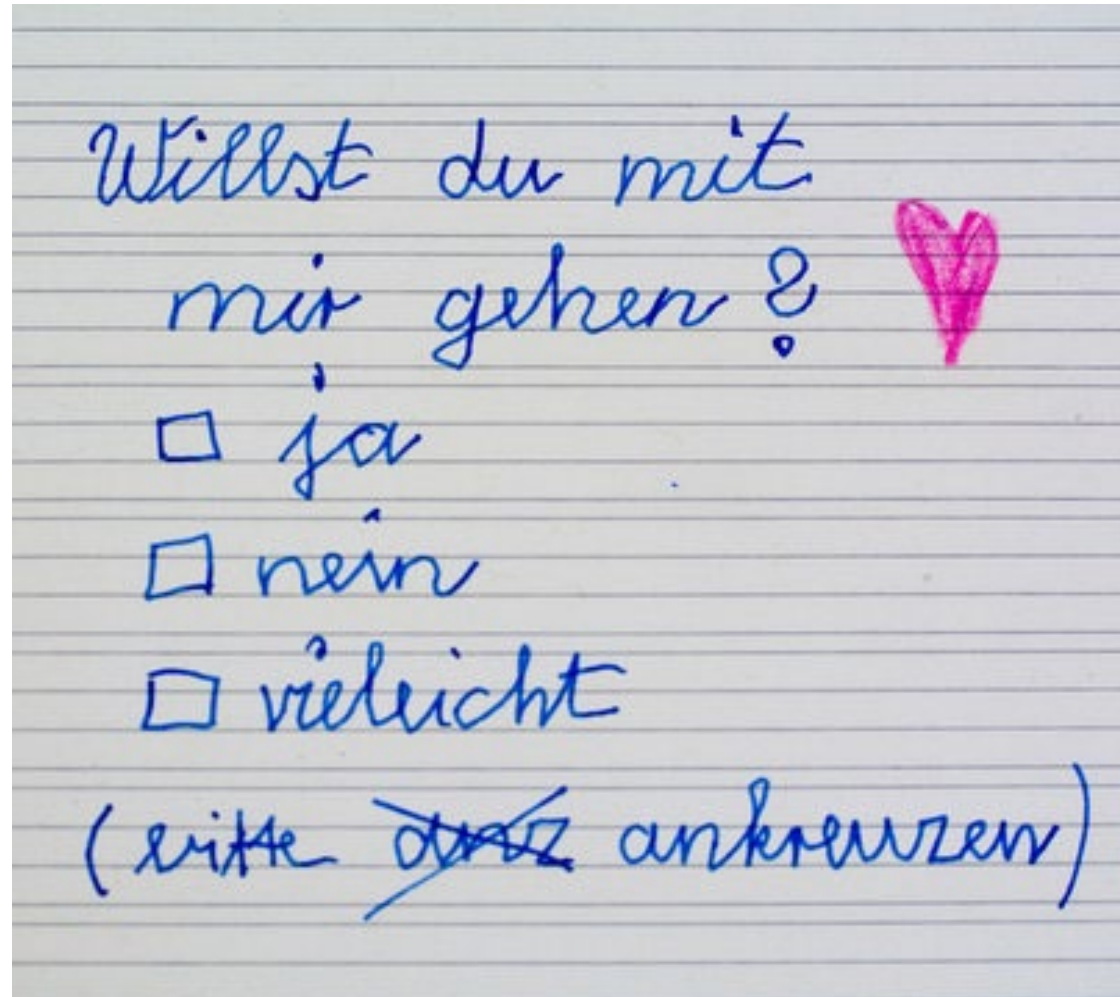 Willst du mit
mir gehen?
ja
nein
vieleicht
(bitte ankreuzen)